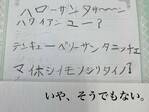 ハローサンタサーーン
ハワイアンユー？
テンキューベリーサンタニッチェ
マイホシイモノジリタイノ？
いや、そうでもない。